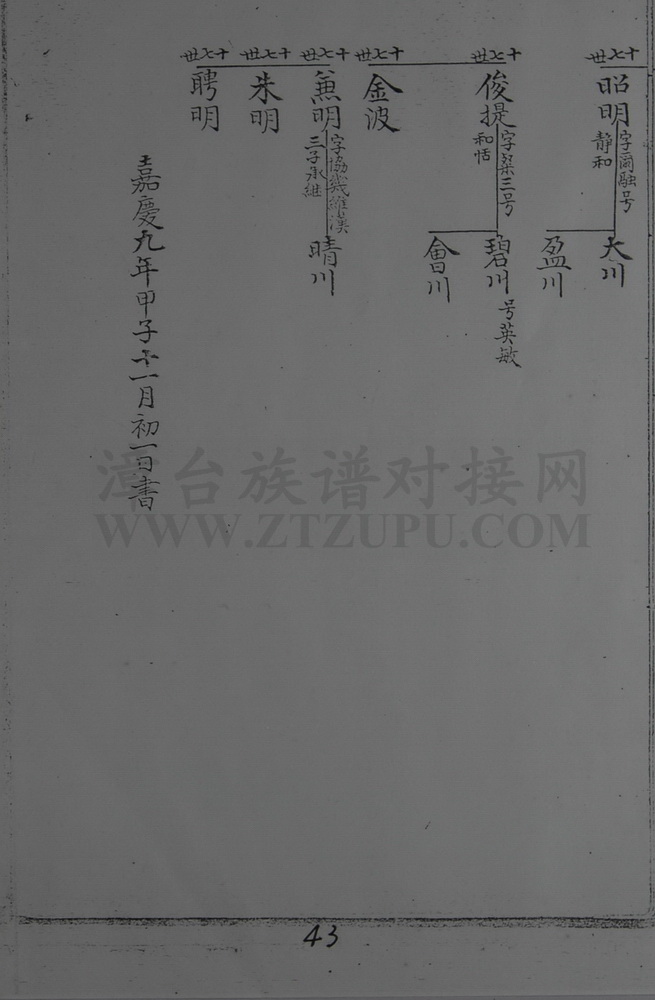 十七世
昭明
字爾融号
静和
大川
盈川
十七世
俊提
字粲三号
和恬
碧川
号英敏
會川
十七世
金波
十七世
兼明
字協幾維漢
三子承継
晴川
十七世
朱明
十七世
聘明
嘉慶九年甲子十一月初一日書
漳台族谱对接网
WWW.ZTZUPU.COM
43